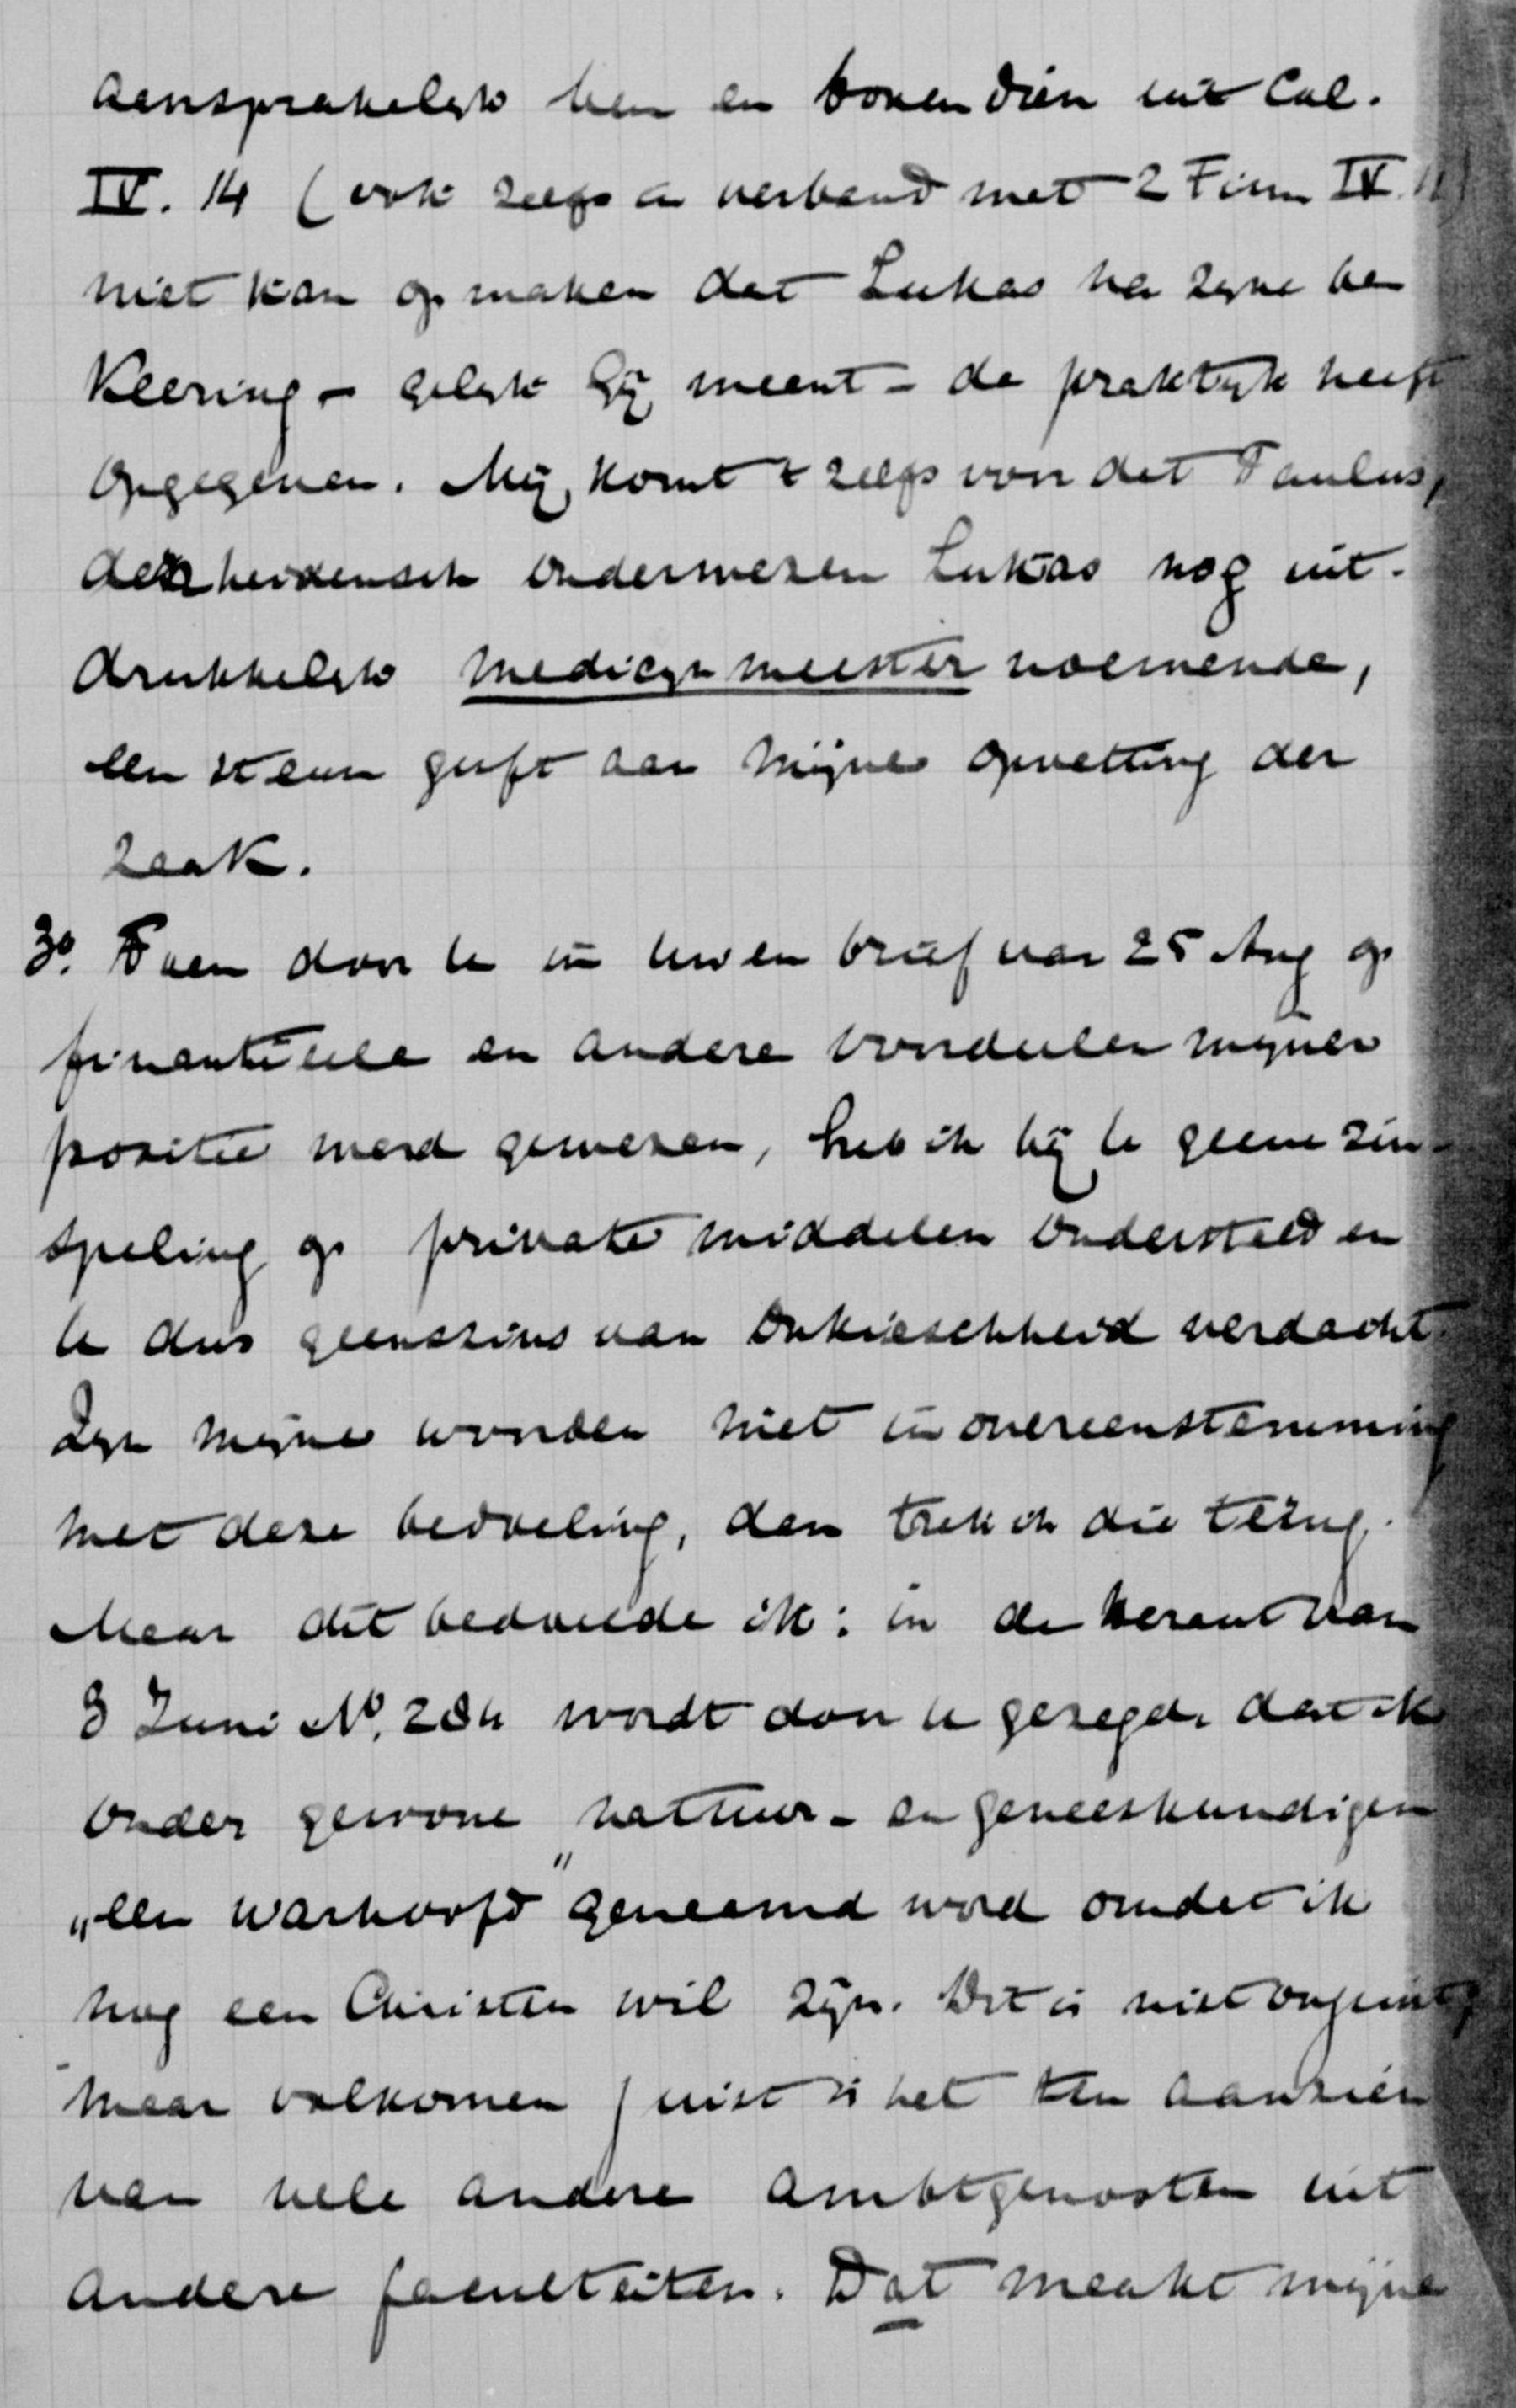 aansprakelijk ben en bovendien uit Col.
IV. 14 (ook zelfs in verband met 2 Tim IV. 11)
niet kan opmaken dat Lukas na zijne be
keering – gelijk gij meent – de praktijk heeft
opgegeven. Mij komt 't zelfs voor dat Paulus,
den heidensch onderwezen Lukas nog uit-
drukkelijk medicijnmeester noemende,
een steun geeft aan mijne opvatting der
zaak.
3o. Toen door U in Uwen brief van 25 Aug op
finantieele en andere voordeelen mijner
positie werd gewezen, heb ik bij U geene zin-
speling op private middelen ondersteld en
U dus geenszins van onkieschheid verdacht.
Zijn mijne woorden niet in overeenstemming
met deze bedoeling, dan trek ik die terug.
Maar dit bedoelde ik: in de Heraut van
3 Juni No. 284 wordt door U gezegd, dat ik
onder gewone "natuur- en geneeskundigen
"een warhoofd" genoemd word omdat ik
nog een Christen wil zijn. Dit is niet onjuist,
maar volkomen juist is het ten aanzien
van vele andere ambtgenooten uit
andere faculteiten. Dat maakt mijne